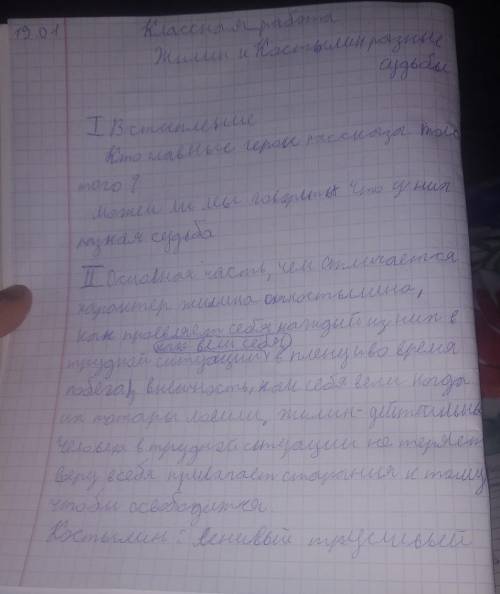 19.01
Классная работа
Жилин и Костылин разные
судьбы
I Вступление
Кто главные герои рассказа Толс
того?
Можем ли мы говорить что у них
разная судьба
II Основная часть, чем отличается
характер жилина от костылина,
как проевляет себя каждый из них в
как вели себя
трудной ситуации, в плену, во время
побега, внешность, как себя вели когда
их татары ловили, жилин - действельны
человек в трудной ситуации не теряет
веру в себя прилагает старания к тому
чтобы освободится
Костылин: ленивый трусливый